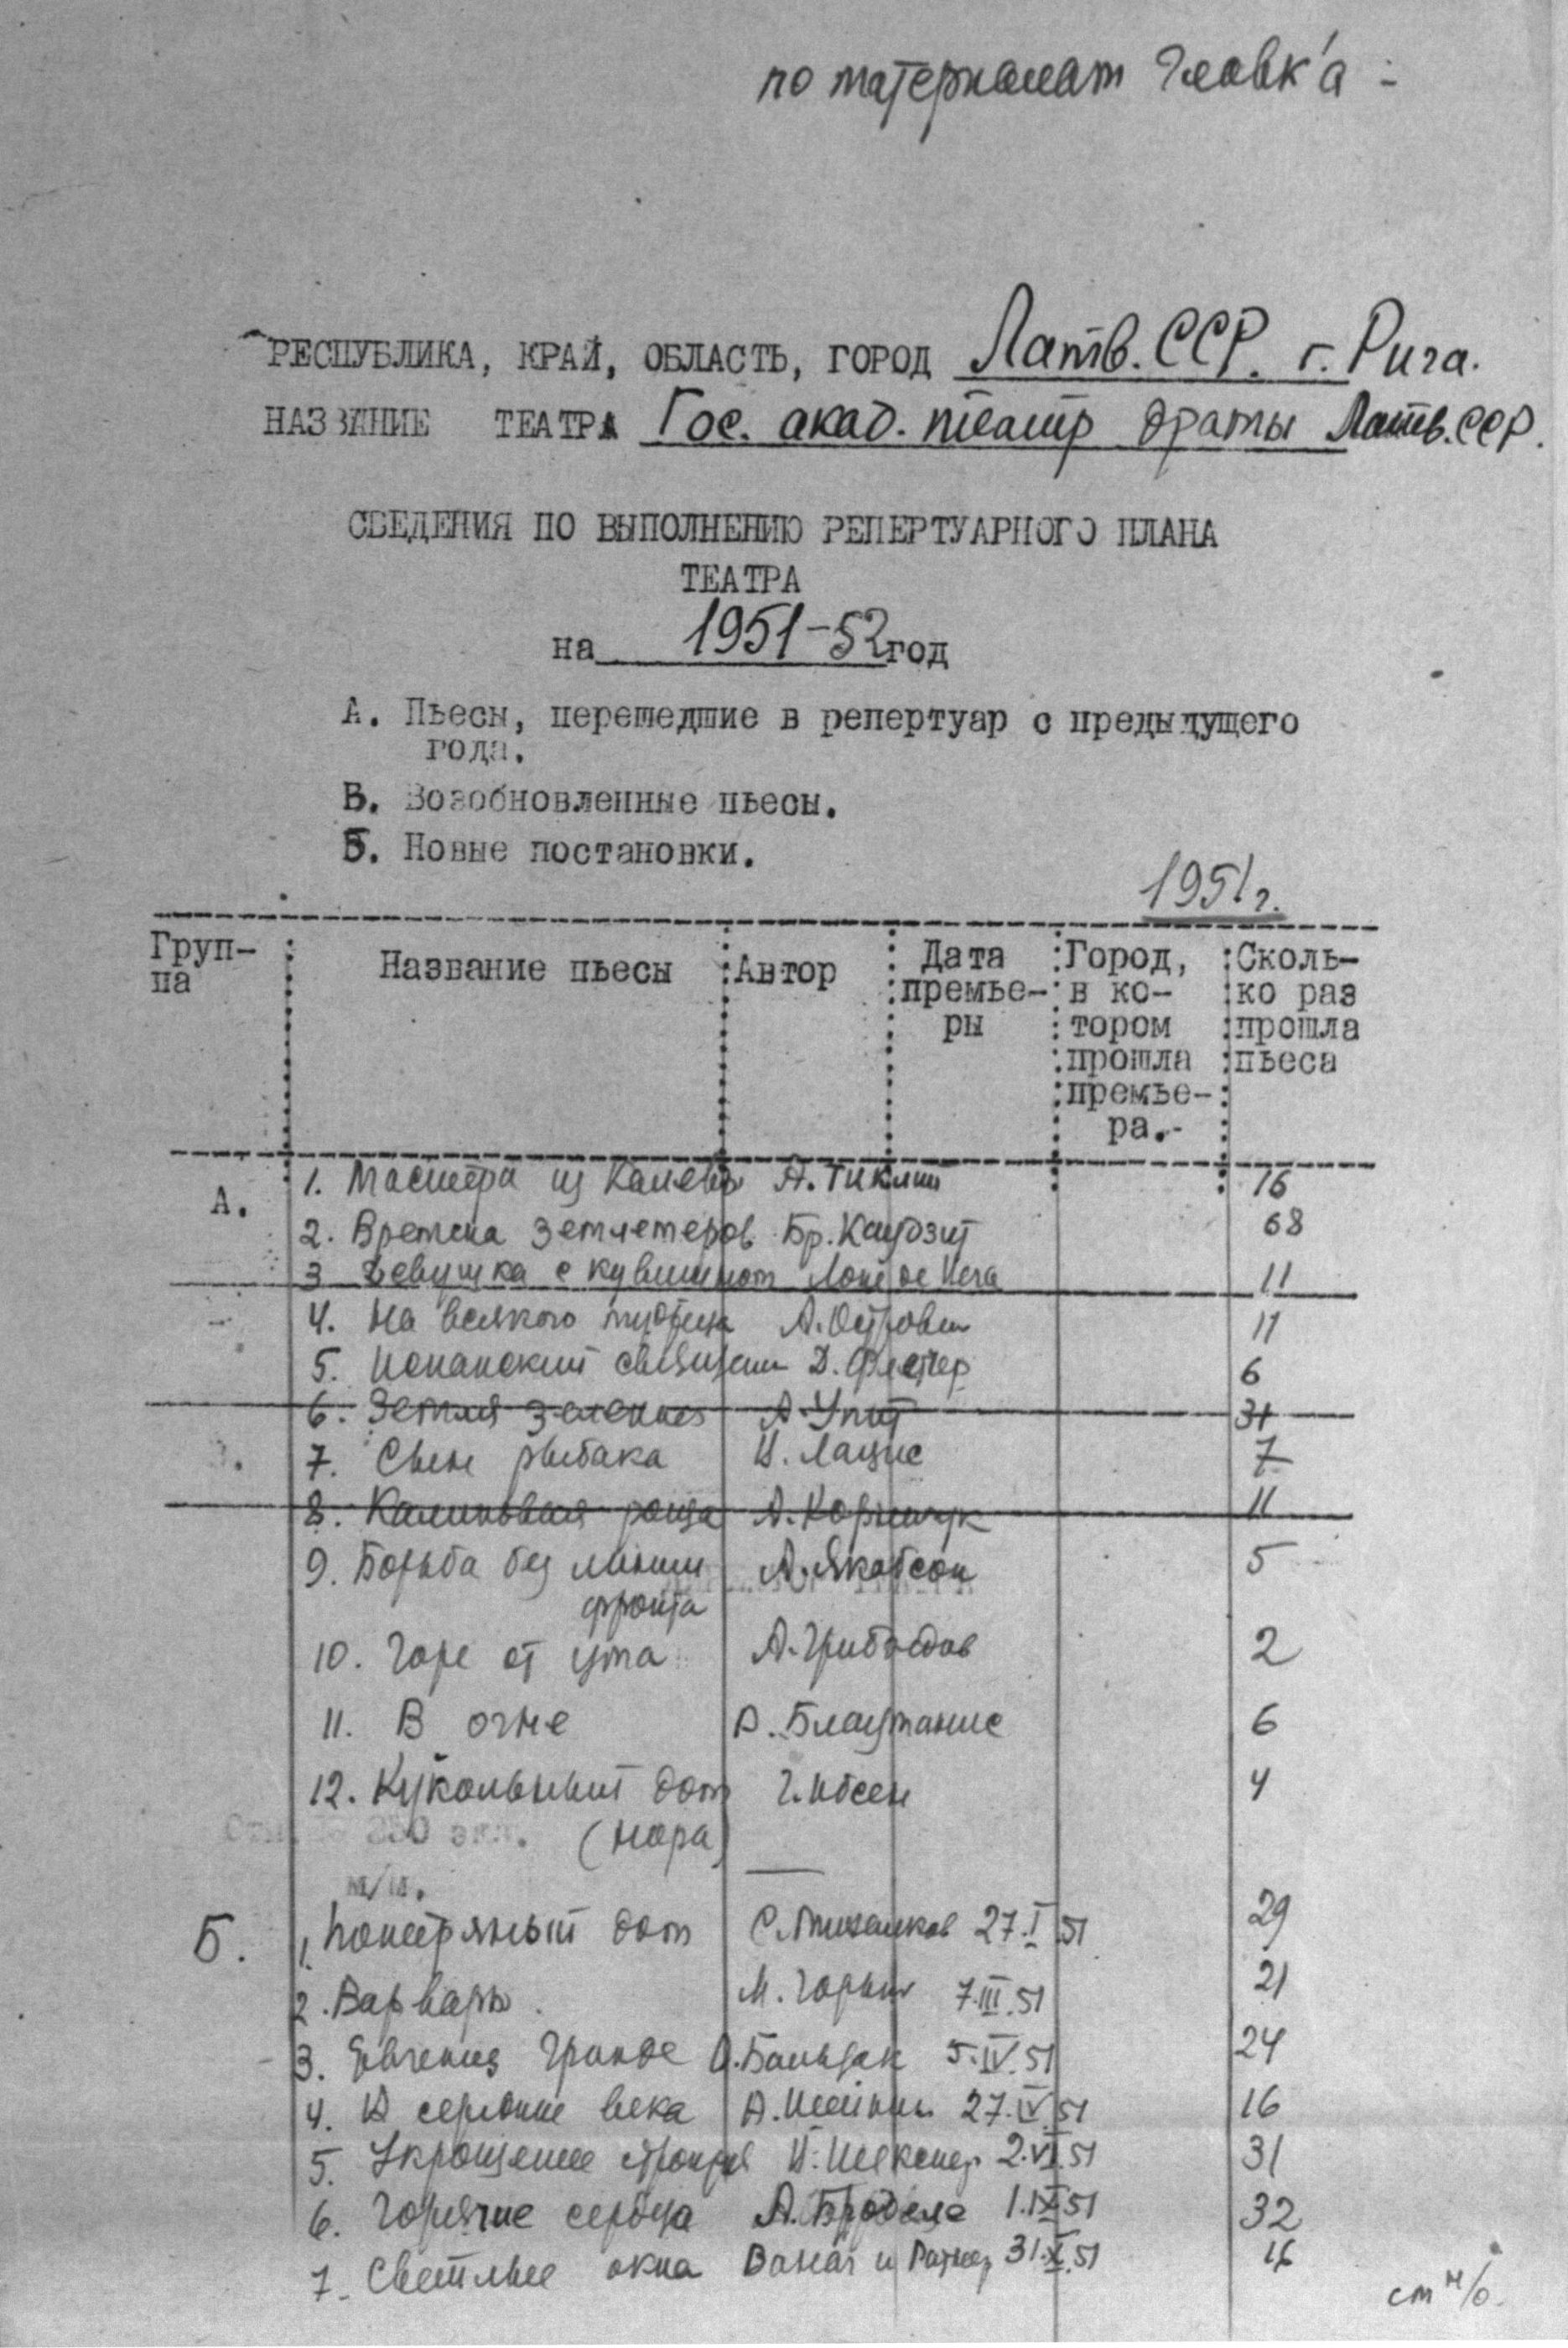 по материалам Главк'а -
РЕСПУБЛИКА, КРАЙ, ОБЛАСТЬ, ГОРОД Латв. ССР. г. Рига.
НАЗВАНИЕ ТЕАТРА Гос. акад. театр драмы Латв. ССР.
СВЕДЕНИЯ ПО ВЫПОЛНЕНИЮ РЕПЕРТУАРНОГО ПЛАНА
ТЕАТРА
на 1951-52 год
А. Пьесы, перешедшие в репертуар с предыдущего
года.
В. Возобновленные пьесы.
Б. Новые постановки.
1951 г.
Груп-
па
Название пьесы
Автор
Дата
премье-
ры
Город,
в ко-
тором
прошла
премье-
ра.-
Сколь-
ко раз
прошла
пьеса
А.
1. Мастера из 16
2. Времена землемеров Бр. Каудзит 68
3 Девушка с кувшином Лопе де Вега 11
4. На всякого мудреца А. Островск 11
5. Испанский священн Д. Флетчер 6
6. Земля зеленая А. Упит 31
7. Сын рыбака В. Лацис 7
8. Калиновая роща А. Корнейчук 11
9. Борьба без линии А. Якобсон 5
фронта
10. Горе от ума А. Грибоедов 2
11. В огне Р. Блауманис 6
12. Кукольный дом Г. Ибсен 4
(Нора)
250 экз.
м/м.
Б.
1. Потерянный дом С. Михалков 27.I.51 29
2. Варвары. М. Горьки 7.III.51 21
3. Евгения Гранде О. Бальзак 5.IV.51 24
4. В середине века 51 16
5. Укрощение строптив В. Шекспир 2.VI.51 31
6. Горячие сердца А. Бродэле 1.IX.51 32
7. Светлые окна Ванаг и 31.X.51 16
см н/о.